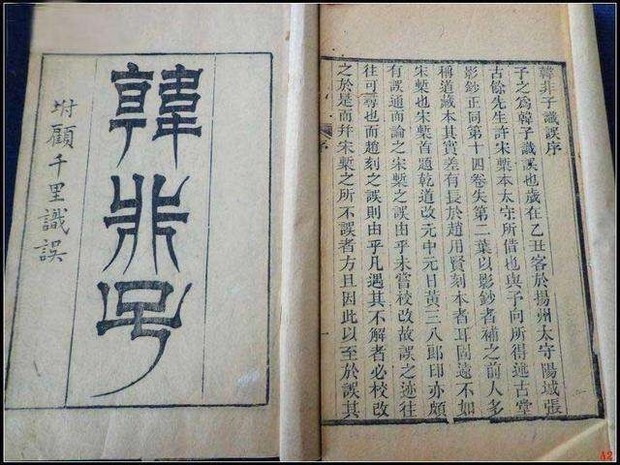 韓非子
坿顧千里識誤
韓非子識誤序
予之爲韓子識誤也歲在乙丑客於揚州太守陽城張
古餘先生許宋槧本太守所借也與予向所得述古堂
影鈔正同第十四卷失第二葉以影鈔者補之前人多
稱道藏本其實差有長於趙用賢刻本者耳固遠不如
宋槧也宋槧首題乾道改元中元日黃三八郎印亦頗
有誤通而論之宋槧之誤由乎未嘗校改故誤之迹往
往可尋也而趙刻之誤則由乎凡遇其不解者必校改
之於是而幷宋槧之所不誤者方且因此以至於誤其
序
A2